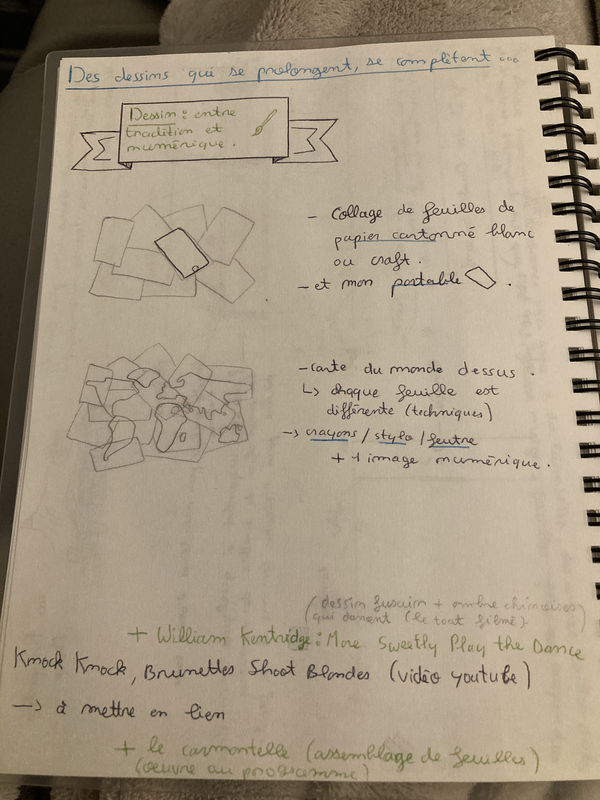 Des dessins qui se prolongent, se complètent ...
Dessin : entre
tradition et
numérique.
- Collage de feuilles de
papier cartonné blanc
ou craft.
- et mon portable .
- carte du monde dessus .
↳ chaque feuille est
différente (techniques)
→ crayons / stylo / feutre
+ 1 image numérique .
(dessin fusain + ombre chinoises)
qui dansent (le tout filmé).
+ William Kentridge : More Sweetly Play the Dance
Knock Knock, Brunettes Shoot Blondes (vidéo youtube)
→ à mettre en lien
+ le carmontelle (assemblage de feuilles)
(oeuvre au programme)